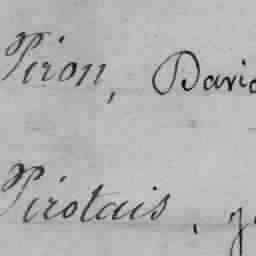 Piron, David
Pirotais, j